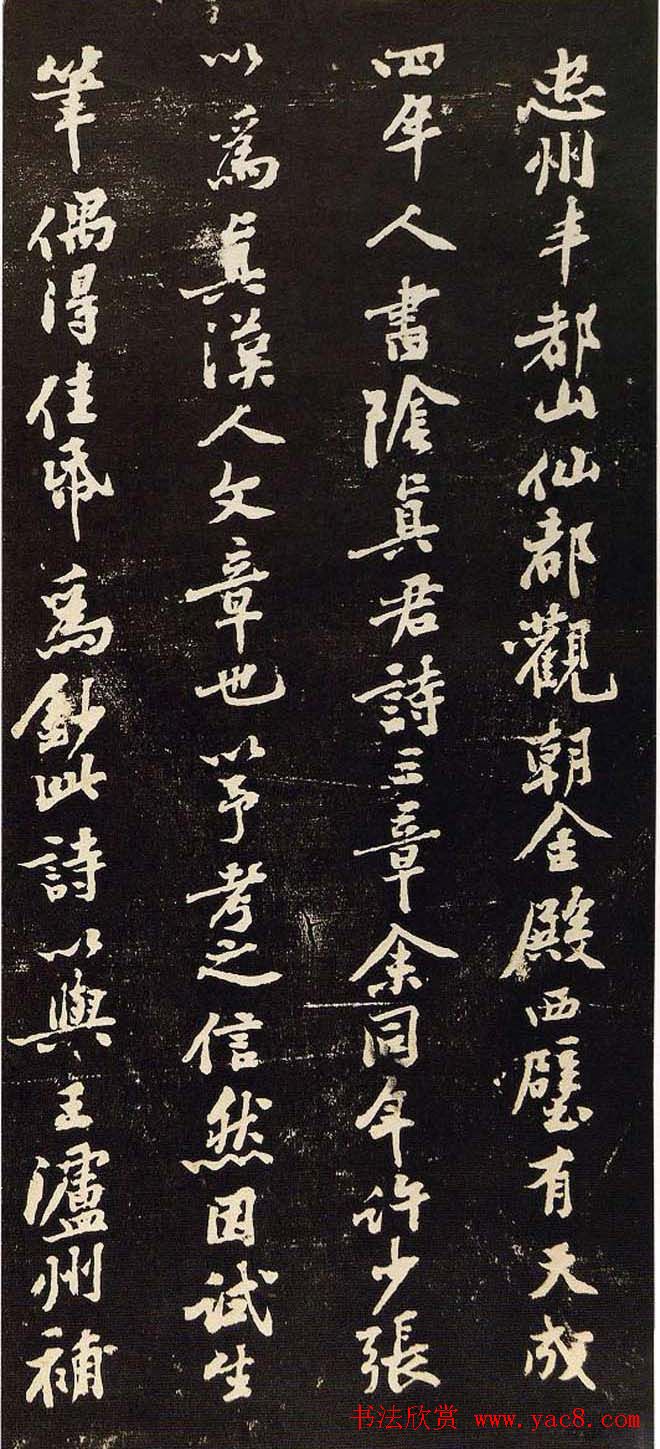 忠州丰都山仙都觀朝金殿西壁有天成
四年人書陰真君詩三章余同年許少張
以為真漢人文章也以予考之信然因試生
筆偶得佳紙為鈔此詩以與王瀘州補
书法欣赏 www.yac8.com